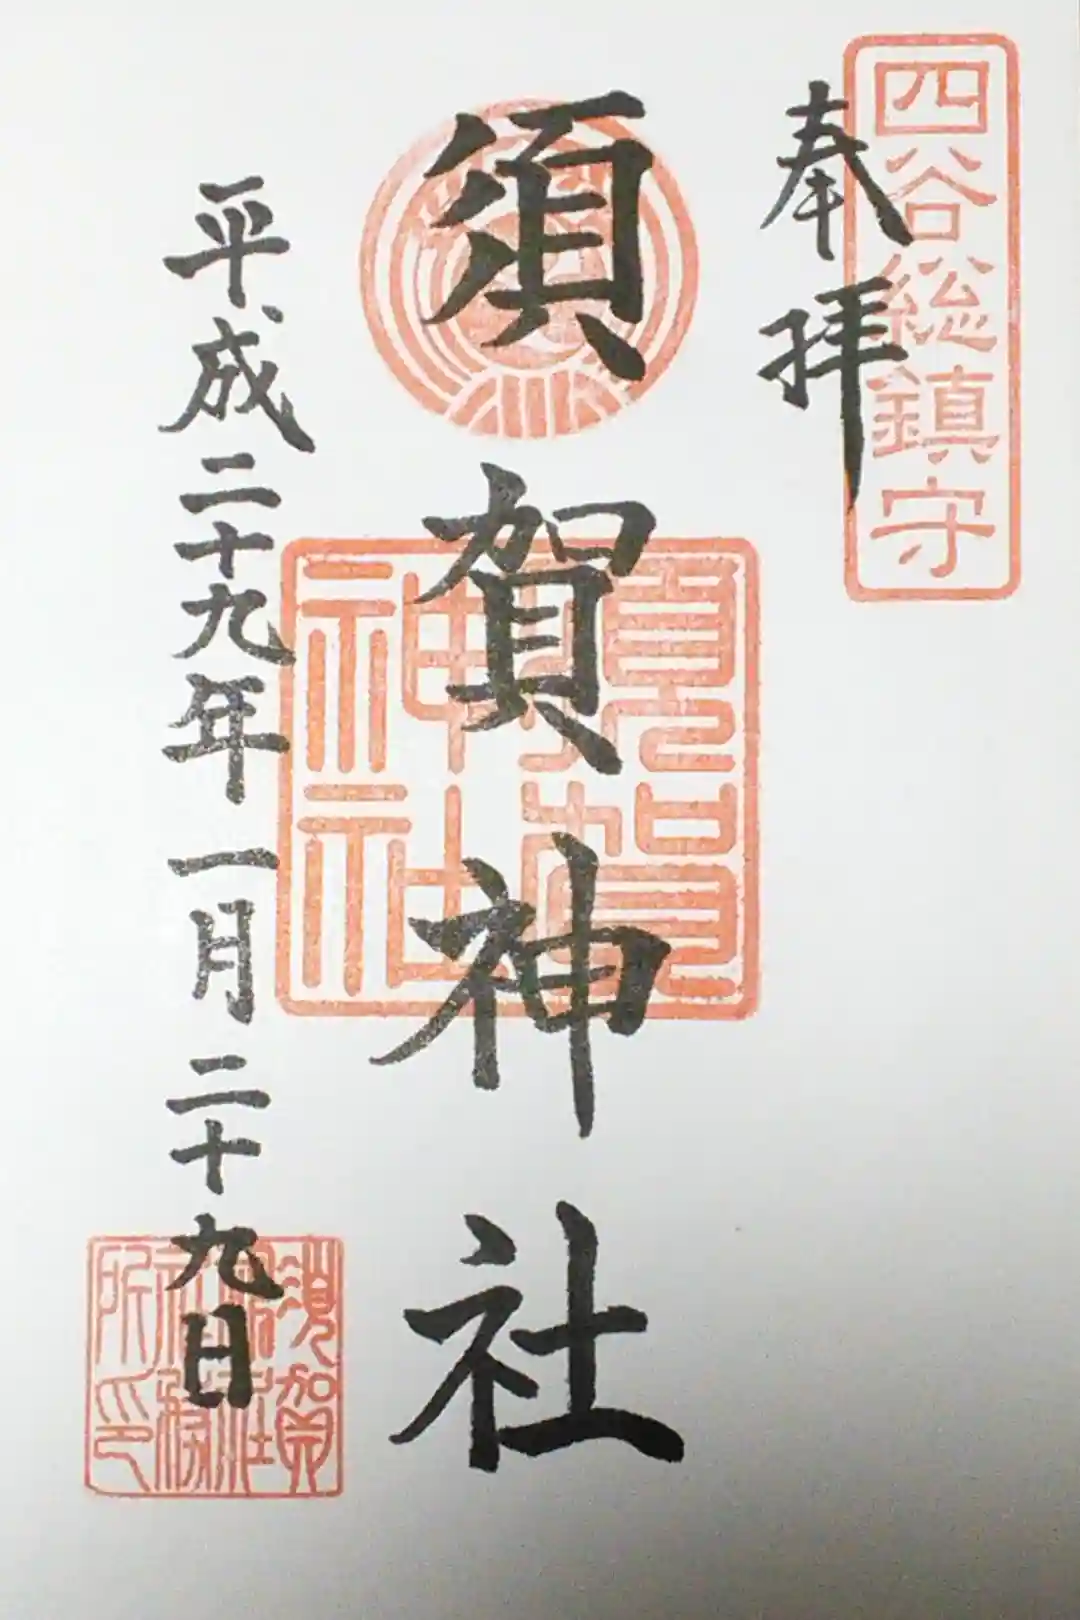 四谷総鎮守
奉拝
須賀神社
須賀神社
平成二十九年一月二十九日
須賀神社社務所印